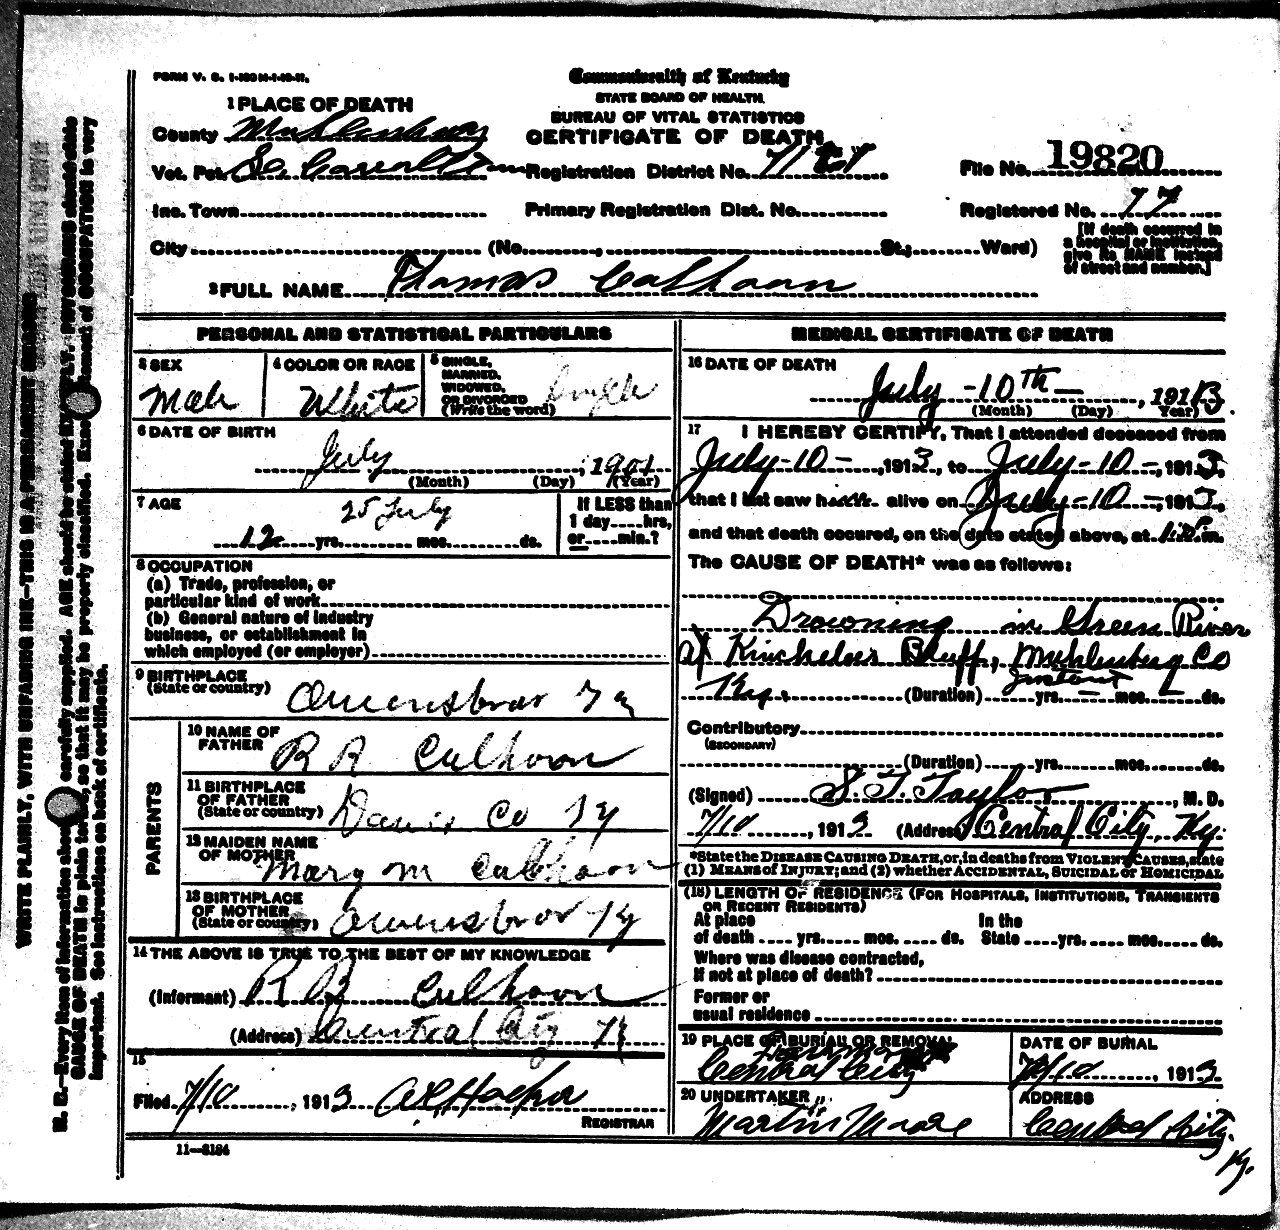 FORM V. S. 1-130 M-1-10-11.
Commonwealth of Kentucky
STATE BOARD OF HEALTH.
BUREAU OF VITAL STATISTICS
CERTIFICATE OF DEATH
1 PLACE OF DEATH
County Muhlenberg
Vot. Pct. So. Carrollton Registration District No. 71
File No. 19820
Inc. Town Primary Registration Dist. No.
Registered No. 77
City (No. , St.; Ward)
[If death occurred in
a hospital or institution,
give its NAME instead
of street and number.]
2 FULL NAME Thomas Calhoon
PERSONAL AND STATISTICAL PARTICULARS
3 SEX
Male
4 COLOR OR RACE
White
5 SINGLE,
MARRIED,
WIDOWED,
OR DIVORCED
(Write the word)
Single
6 DATE OF BIRTH
July , 1901
(Month) (Day) (Year)
7 AGE
25 July
12 yrs. mos. ds.
If LESS than
1 day hrs,
or min.?
8 OCCUPATION
(a) Trade, profession, or
particular kind of work
(b) General nature of industry
business, or establishment in
which employed (or employer)
9 BIRTHPLACE
(State or country)
Owensboro Ky
PARENTS
10 NAME OF
FATHER
R R Calhoon
11 BIRTHPLACE
OF FATHER
(State or country)
Daviess Co Ky
12 MAIDEN NAME
OF MOTHER
Mary M Calhoon
13 BIRTHPLACE
OF MOTHER
(State or country)
Owensboro Ky
14 THE ABOVE IS TRUE TO THE BEST OF MY KNOWLEDGE
(Informant) R R Calhoon
(Address) Central City Ky
15
Filed 7/10 , 1913
REGISTRAR
11—3184
MEDICAL CERTIFICATE OF DEATH
16 DATE OF DEATH
July - 10th — , 1913
(Month) (Day) Year)
17 I HEREBY CERTIFY, That I attended deceased from
July - 10 - , 1913, to July - 10 - , 1913,
that I last saw h alive on July - 10 - , 1913,
and that death occured, on the date stated above, at m.
The CAUSE OF DEATH* was as follows:
Drowning in Green River
at Kincheloes Bluff, Muhlenberg Co
Ky. (Duration) Instant yrs. — mos. — ds.
Contributory
(SECONDARY)
(Duration) yrs. mos. ds.
(Signed) S. T. Taylor , M. D.
7/10 , 1913 (Address) Central City, Ky.
*State the DISEASE CAUSING DEATH, or, in deaths from VIOLENT CAUSES, state
(1) MEANS of INJURY; and (2) whether ACCIDENTAL, SUICIDAL or HOMICIDAL
(18) LENGTH OF RESIDENCE (FOR HOSPITALS, INSTITUTIONS, TRANSIENTS
OR RECENT RESIDENTS)
At place In the
of death yrs. mos. ds. State yrs. mos. ds.
Where was disease contracted,
If not at place of death?
Former or
usual residence
19 PLACE OF BURIAL OR REMOVAL
Central City
DATE OF BURIAL
7/10 , 1913
20 UNDERTAKER
Martin Moore
ADDRESS
Central City.
Ky.
WRITE PLAINLY, WITH UNFADING INK—THIS IS A PERMANENT RECORD
N. B.—Every item of information should be carefully supplied. AGE should be stated EXACTLY. PHYSICIANS should state
CAUSE OF DEATH in plain terms, so that it may be properly classified. Exact statement of OCCUPATION is very
important. See instructions on back of certificate.